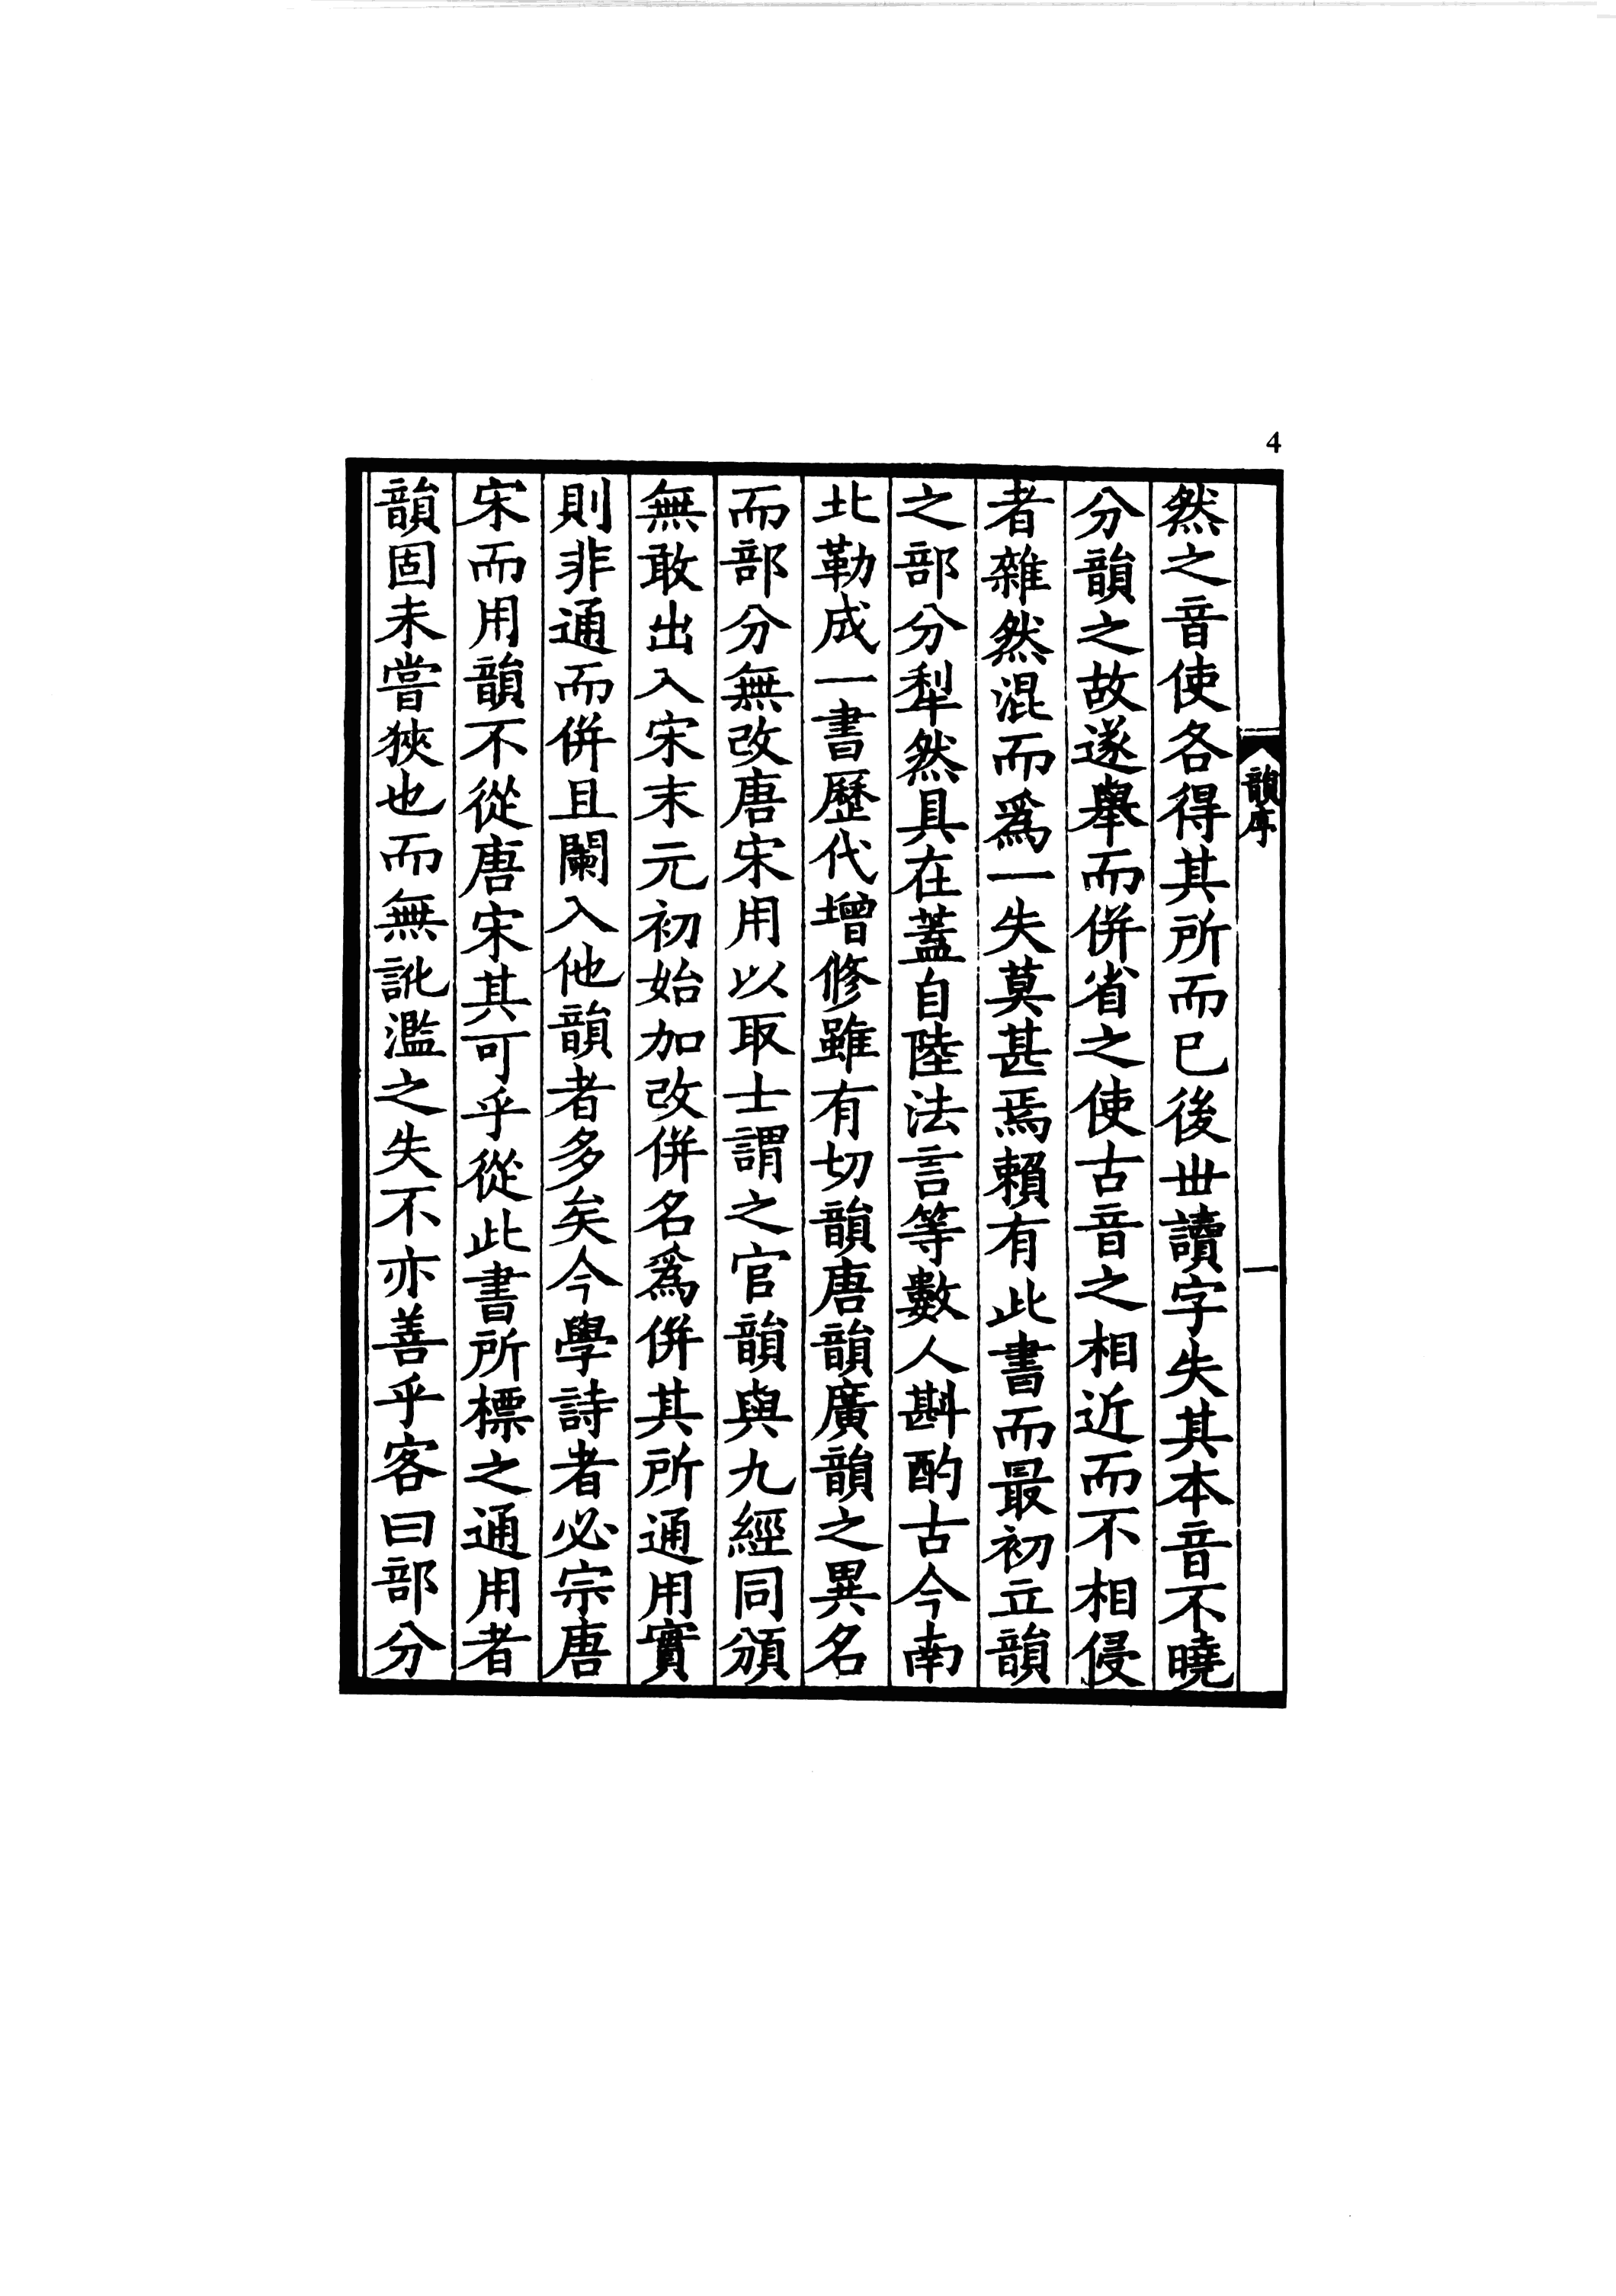 4
韻序
一
然之音使各得其所而已後世讀字失其本音不曉
分韻之故遂舉而併省之使古音之相近而不相侵
者雜然混而爲一失莫甚焉賴有此書而最初立韻
之部分犁然具在蓋自陸法言等數人斟酌古今南
北勒成一書歷代增修雖有切韻唐韻廣韻之異名
而部分無改唐宋用以取士謂之官韻與九經同頒
無敢出入宋末元初始加改併名爲併其所通用實
則非通而併且闌入他韻者多矣今學詩者必宗唐
宋而用韻不從唐宋其可乎從此書所標之通用者
韻固未嘗狹也而無訛濫之失不亦善乎客曰部分